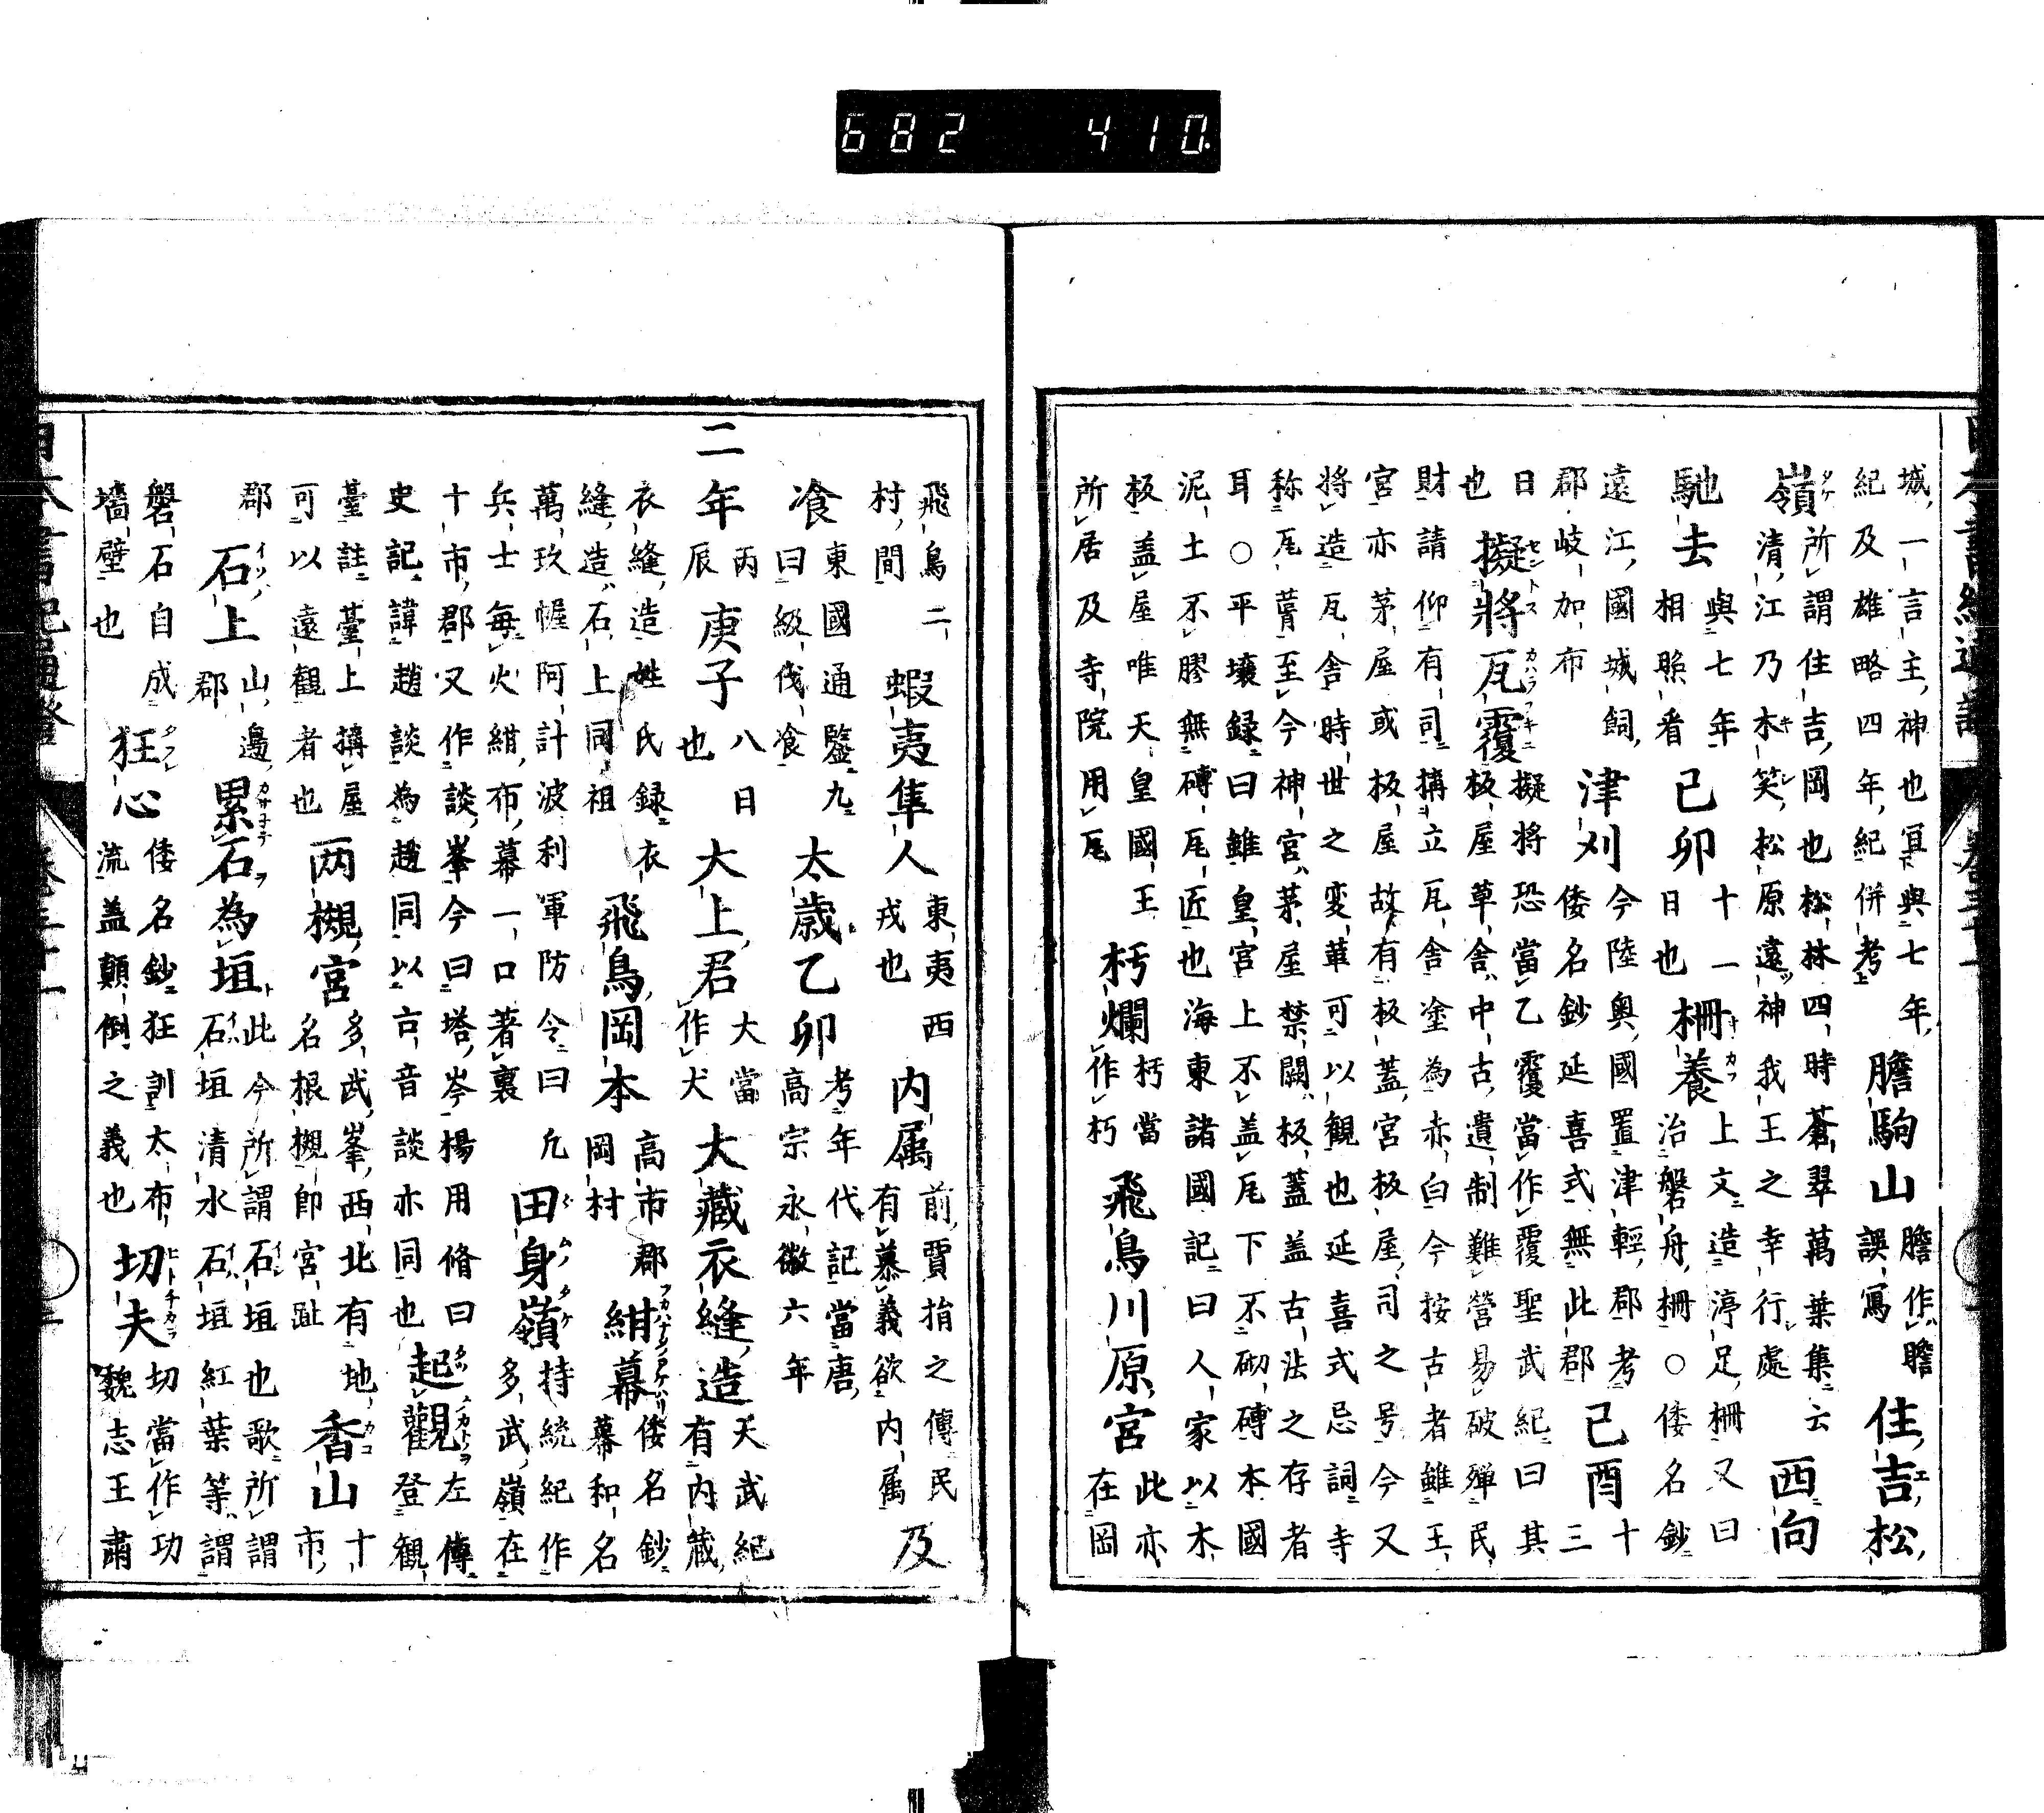 682 410
城一言主神也宜與七年
紀及雄略四年紀併考
膽駒山
膽作膽
誤寫
住吉松
嶺
所謂住吉岡也松林四時蒼翠萬葉集云
清江乃木笑松原遠神我王之幸行處
西向
馳去
與七年
相照看
己卯
十一
日也
柵養
上文造渟足柵又曰
治磐舟柵○倭名鈔
遠江國城飼
郡岐加布
津刈
今陸奧國置津輕郡考
倭名鈔延喜式無此郡
己酉
十三
日也
擬將瓦覆
擬將恐當乙覆當作覆聖武紀曰其
板屋草舍中古遺制難營易破殫民
財請仰有司搆立瓦舍塗為赤白今按古者雖王
宮亦茅屋或板屋故有板蓋宮板屋司之号今又
將造瓦舍時世之変華可以観也延喜式忌詞寺
称瓦葺至今神宮茅屋禁闕板蓋盖古法之存者
耳○平壤録曰雖皇宮上不盖瓦下不砌磚本國
泥土不膠無磚瓦匠也海東諸國記曰人家以木
板盖屋唯天皇國王
所居及寺院用瓦
朽爛
朽當
作朽
飛鳥川原宮
此亦
在岡
飛鳥
村間
二
蝦夷隼人
東夷西
戎也
内属
前賈捐之傳民
有慕義欲内属
及
飡
東國通鑒九
曰級伐飡
太歲乙卯
考年代記當唐
高宗永徽六年
二年
丙
辰
庚子
八日
也
大上君
大當
作犬
大藏衣縫造
天武紀
有内藏
衣縫造姓氏録衣
縫造石上同祖
飛鳥岡本
高市郡
岡村
紺幕
倭名鈔
幕和名
萬玖幄阿計波利軍防令曰凡
兵士每火紺布幕一口著裏
田身嶺
持統紀作
多武嶺在
十市郡又作談峯今曰塔岑楊用脩曰
史記諱趙談為趙同以古音談亦同也
起觀
左傳
登觀
臺註臺上搆屋
可以遠観者也
两槻宮
多武峯西北有地
名根槻即宮趾
香山
十市
郡
石上
山邉
郡
累石為垣
此今所謂石垣也歌所謂
石垣清水石垣紅葉等謂
磐石自成
墻壁也
狂心
倭名鈔狂訓太布
流盖顛倒之義也
切夫
切當作功
魏志王肅